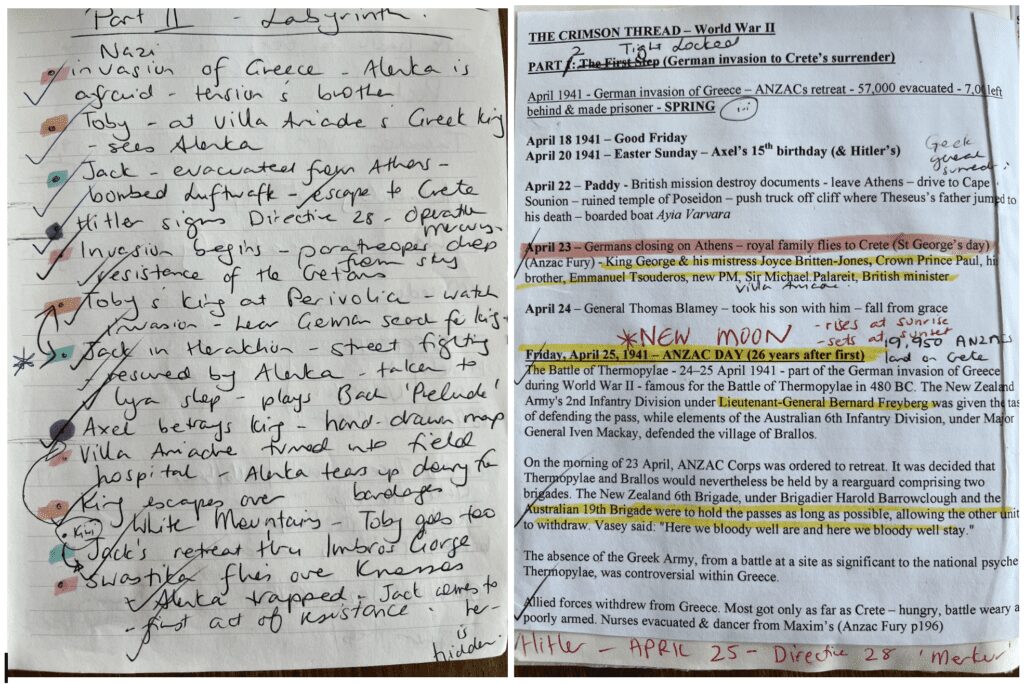 Part II - Labyrinth.
Nazi
invasion of Greece - Alenka is
afraid - tension & brother
Toby - at Villa Ariadne & Greek king
- sees Alenka
Jack - evacuated from Athens -
bombed Luftwaffe - escape to Crete
Hitler signs Directive 28 - Operation
Mercury
Invasion begins - paratroopers drop
from sky
resistance of the Cretans
Toby & King at Perivolia - watch
invasion - hear German search for king
Jack in Heraklion - street fighting
- rescued by Alenka taken to
lyra shop - plays Bach 'Prelude'
Axel betrays king - hand-drawn map
Villa Ariadne turned into field
hospital - Alenka tears up dowry for
bandages
King escapes over
White Mountains - Toby goes too
Kiki
Jack's retreat thru Imbros Gorge
Swastika flies over Knossos
& Alenka trapped - Jack comes to
her -
- first act of resistance.
is
hidden.
THE CRIMSON THREAD – World War II
2 Tight Locked
PART 1: The First Step (German invasion to Crete's surrender)
April 1941 - German invasion of Greece – ANZACs retreat - 57,000 evacuated - 7,0 left
behind & made prisoner - SPRING
April 18 1941 – Good Friday
April 20 1941 – Easter Sunday – Axel's 15th birthday (& Hitler's)
April 22 – Paddy - British mission destroy documents - leave Athens – drive to Cape
Sounion – ruined temple of Poseidon – push truck off cliff where Theseus's father jumped to
his death – boarded boat Ayia Varvara
April 23 – Germans closing on Athens – royal family flies to Crete (St George's day)
(Anzac Fury) - King George & his mistress Joyce Britten-Jones, Crown Prince Paul, his
brother, Emmanuel Tsouderos, new PM, Sir Michael Palareit, British minister
Villa Ariadne.
April 24 – General Thomas Blamey – took his son with him – fall from grace
*NEW MOON
- rises at sunrise
- sets at sunset
19,950 ANZACs
land on Crete
Friday, April 25, 1941 – ANZAC DAY (26 years after first)
The Battle of Thermopylae - 24–25 April 1941 - part of the German invasion of Greece
during World War II - famous for the Battle of Thermopylae in 480 BC. The New Zealand
Army's 2nd Infantry Division under Lieutenant-General Bernard Freyberg was given the tas
of defending the pass, while elements of the Australian 6th Infantry Division, under Major
General Iven Mackay, defended the village of Brallos.
On the morning of 23 April, ANZAC Corps was ordered to retreat. It was decided that
Thermopylae and Brallos would nevertheless be held by a rearguard comprising two
brigades. The New Zealand 6th Brigade, under Brigadier Harold Barrowclough and the
Australian 19th Brigade were to hold the passes as long as possible, allowing the other unit
to withdraw. Vasey said: "Here we bloody well are and here we bloody well stay."
The absence of the Greek Army, from a battle at a site as significant to the national psyche
Thermopylae, was controversial within Greece.
Allied forces withdrew from Greece. Most got only as far as Crete – hungry, battle weary a
poorly armed. Nurses evacuated & dancer from Maxim's (Anzac Fury p196)
Hitler - APRIL 25 - Directive 28 'Merkur'